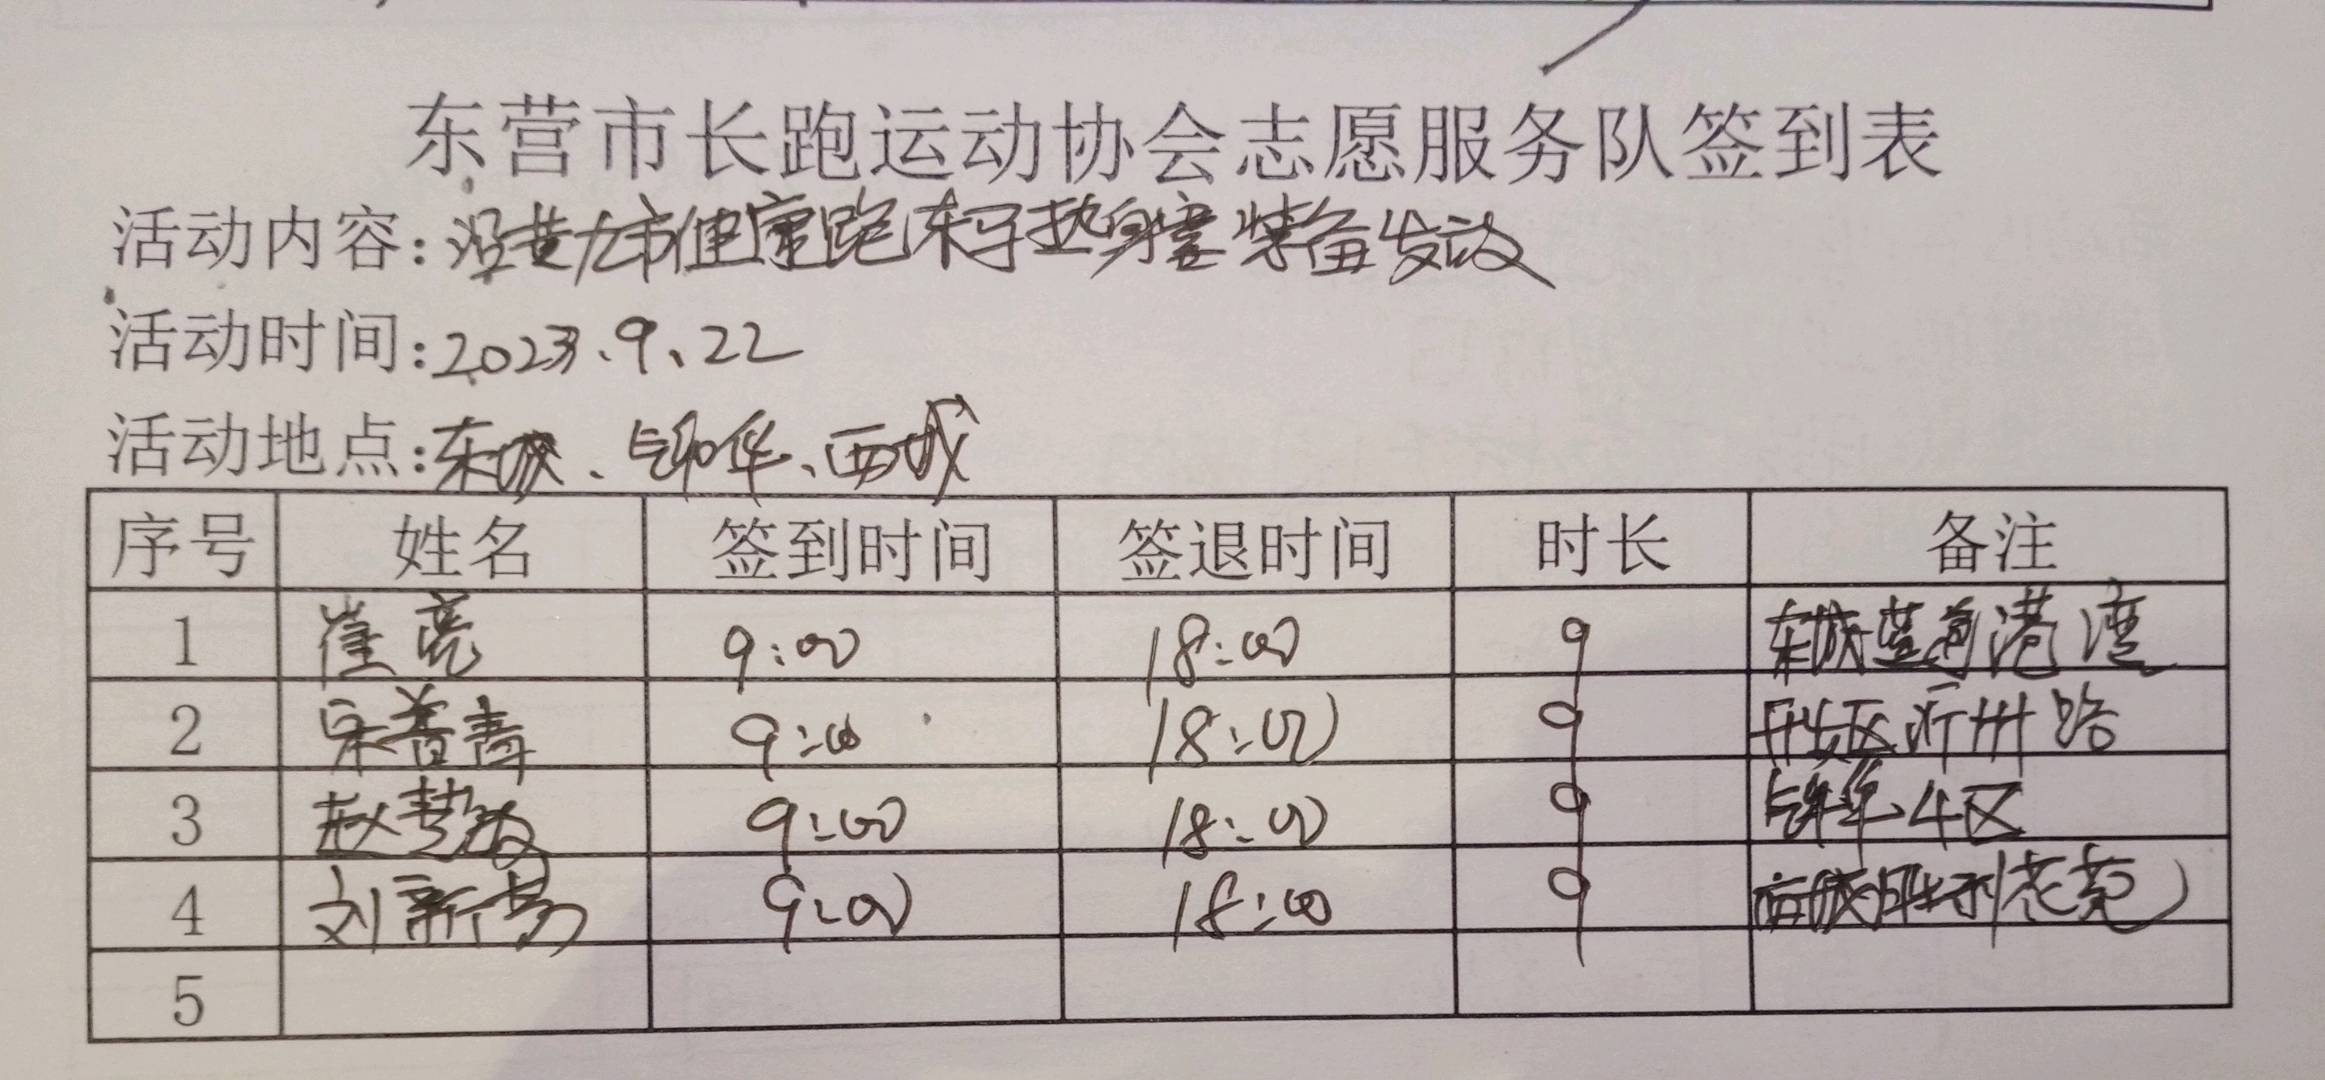 东营市长跑运动协会志愿服务队签到表
活动内容:沿黄九市健康跑东马热身赛装备发放
活动时间:2023.9.22
活动地点:东城、锦华、西城
序号 姓名 签到时间 签退时间 时长 备注
1 崔亮 9:00 18:00 9 东城蓝海港湾
2 宋普青 9:00 18:00 9 开发区沂州路
3 赵 9:00 18:00 9 锦华4区
4 刘新 9:00 18:00 9 西城胜利花苑
5